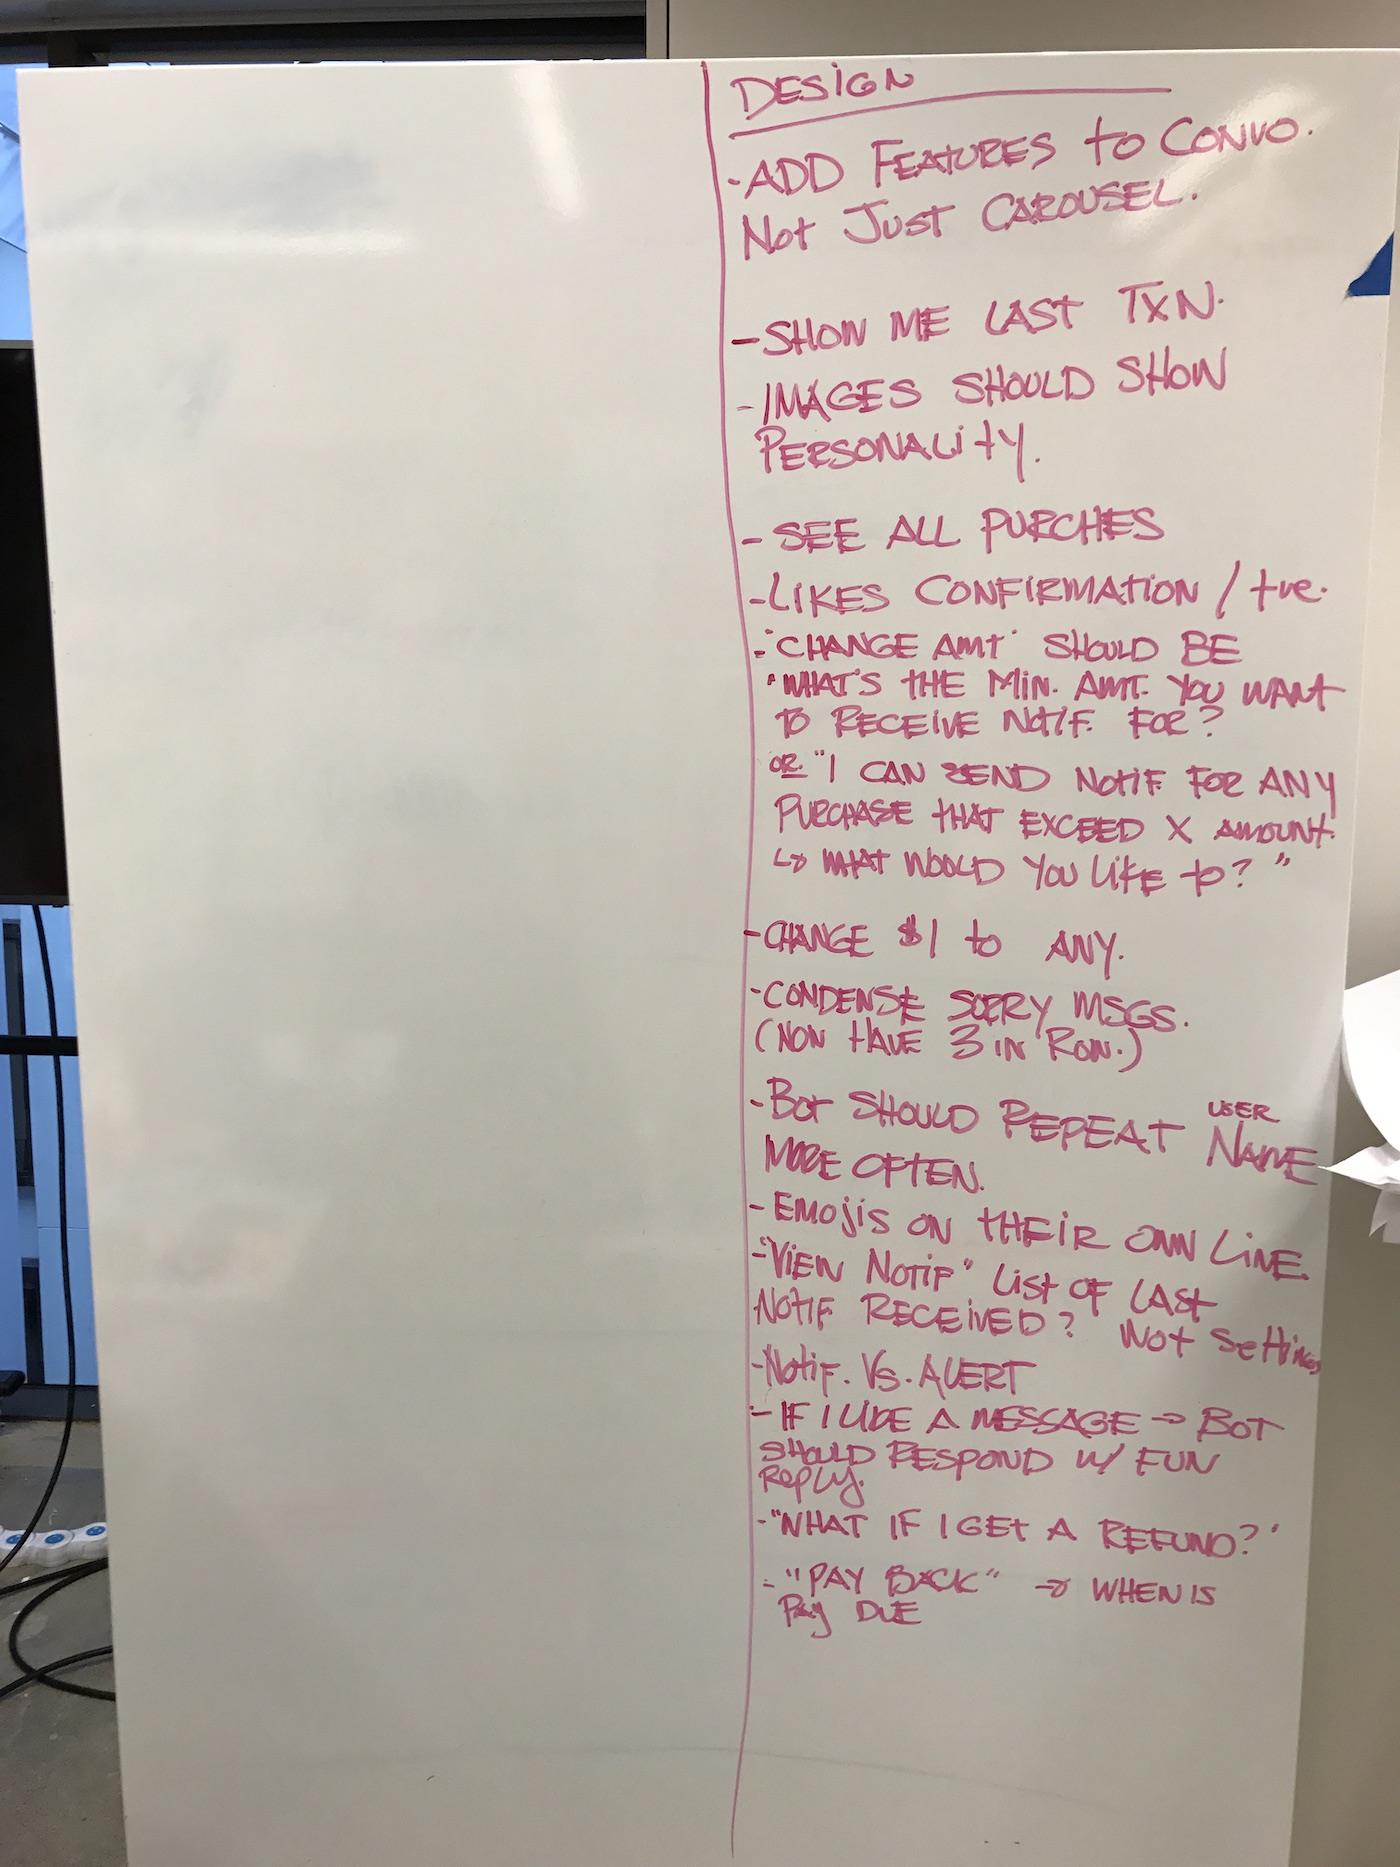 DESIGN
- ADD FEATURES to CONVO.
Not Just CAROUSEL.
- SHOW ME LAST TXN.
- IMAGES SHOULD SHOW
PERSONALITY.
- SEE ALL PURCHES
- LIKES CONFIRMATION / +ve.
- "CHANGE AMT" SHOULD BE
"WHAT'S THE MIN. AMT. YOU WANT
TO RECEIVE NOTIF. FOR?
OR "I CAN SEND NOTIF FOR ANY
PURCHASE THAT EXCEED X AMOUNT.
↳ WHAT WOULD YOU LIKE to? "
- CHANGE $1 to ANY.
- CONDENSE SORRY MSGS.
(NON HAVE 3 IN ROW.)
- BOT SHOULD REPEAT USER NAME
MORE OFTEN.
- EMOJIS ON THEIR OWN LINE.
- "VIEW NOTIF" LIST OF LAST
NOTIF RECEIVED? Not Settings
- Notif. Vs. ALERT
- IF I LIKE A MESSAGE → BOT
SHOULD RESPOND W/ FUN
REPLY.
- "WHAT IF I GET A REFUND?"
- "PAY BACK" → WHEN IS
PAY DUE